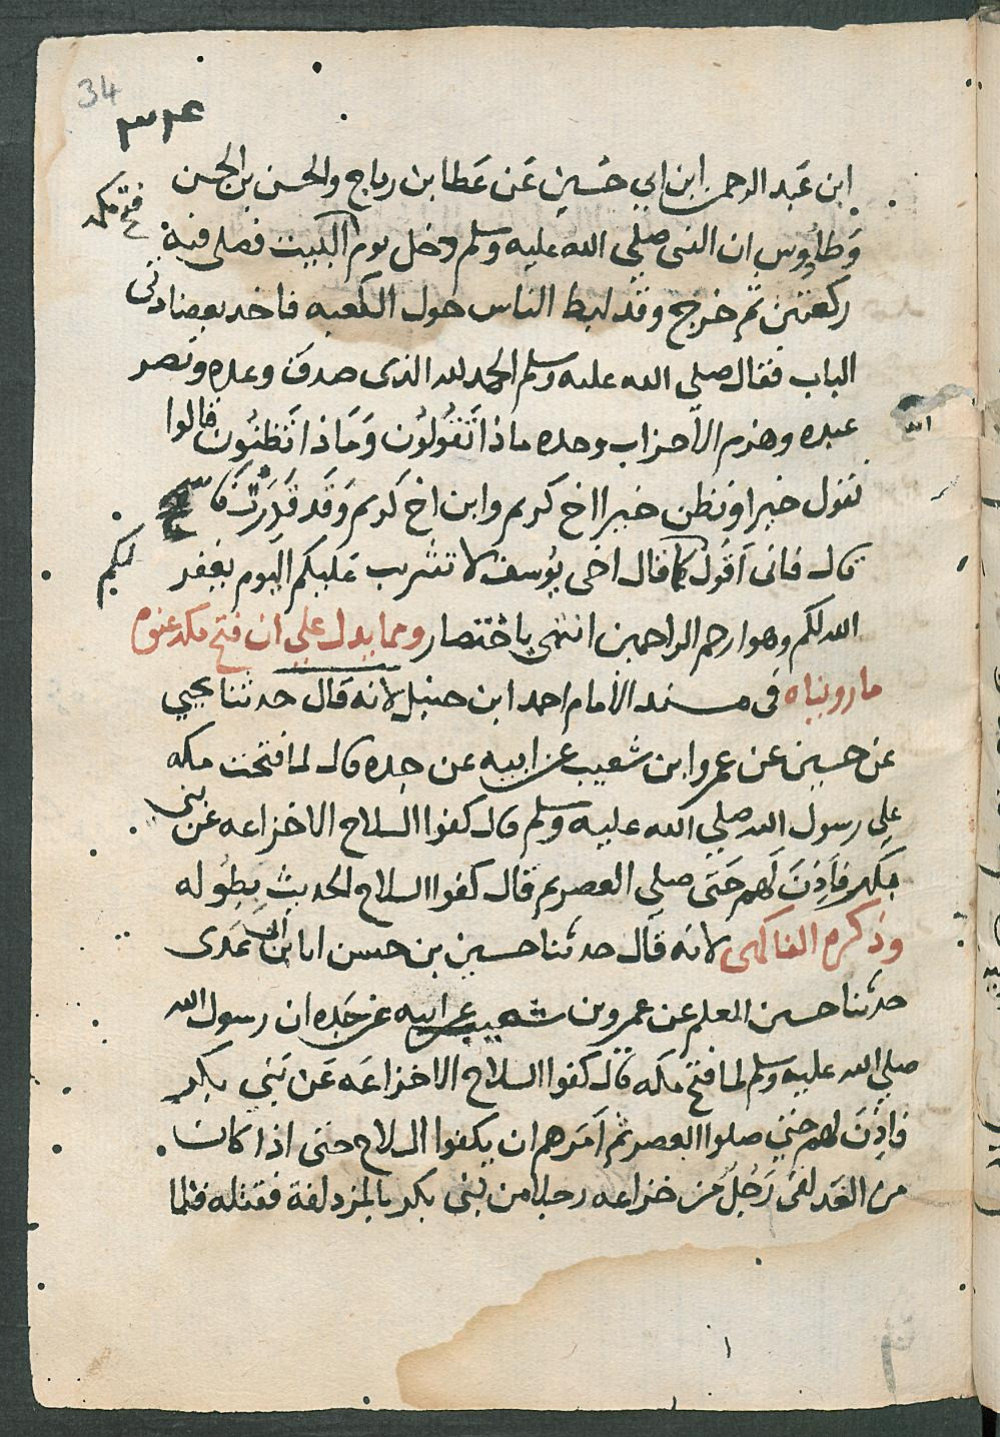 34
٣٤
ابن عبد الرحمن ابن ابي حسين عن عطا بن رباح والحسن بن الحسن
فتح مكه
وطاووس ان النبي صلي الله عليه وسلم دخل يوم البيت فصلى فيه
ركعتين ثم خرج وقد لبط الناس حول الكعبه فاخد بعضادتى
الباب فقال صلي الله عليه وسلم الحمد لله الذى صدق وعده ونصر
عبده وهزم الاحزاب وحده ماذا تقولون وماذا تظنون قالوا
نقول خيرا ونظن خيرا اخ كريم وابن اخ كريم وقد قدرت فا
قال فانى اقول كما قال اخى يوسف لا تثريب عليكم اليوم يغفر
لكم
الله لكم وهو ارحم الراحمين انتهى باختصار ومما يدل علي ان فتح مكه عنوه
ما رويناه فى مسند الامام احمد ابن حنبل لانه قال حدثنا يحيي
عن حسين عن عمرو ابن شعيب عن ابيه عن جده قال لما فتحت مكه
علي رسول الله صلي الله عليه وسلم قال كفوا السلاح الا خزاعه عن بنى
بكر فاذن لهم حتى صلي العصر ثم قال كفوا السلاح الحديث بطوله
وذكره الفاكهى لانه قال حدثنا حسين بن حسن انا ابن ابى عدى
حدثنا حسين المعلم عن عمرو بن شعيب عن ابيه عن جده ان رسول الله
صلي الله عليه وسلم لما فتح مكه قال كفوا السلاح الا خزاعه عن بنى بكر
فاذن لهم حتي صلوا العصر ثم امرهم ان يكفوا السلاح حتى اذا كان
من الغد لقى رجل من خزاعه رجلا من بنى بكر بالمزدلفة فقتله فلما